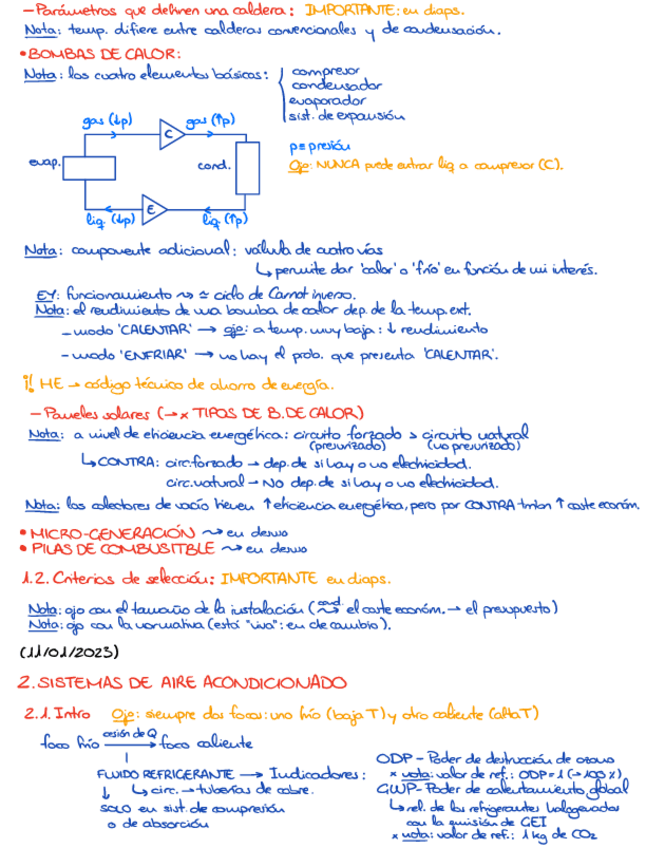 - Parámetros que definen una caldera: IMPORTANTE: en diaps.
Nota: temp. difiere entre calderas convencionales y de condensación.
• BOMBAS DE CALOR:
Nota: los cuatro elementos básicos: compresor
condensador
evaporador
sist. de expansión
gas (↓p) C gas (↑p)
evap. cond.
liq. (↓p) E liq. (↑p)
p = presión
Ojo: NUNCA puede entrar liq a compresor (C).
Nota: componente adicional: válvula de cuatro vías
↳ permite dar 'calor' o 'frío' en función de mi interés.
EY: funcionamiento ~> ≃ ciclo de Carnot inverso.
Nota: el rendimiento de una bomba de calor dep. de la temp. ext.
- modo 'CALENTAR' → ojo: a temp. muy baja: ↓ rendimiento
- modo 'ENFRIAR' → no hay el prob. que presenta 'CALENTAR'.
¡! HE → código técnico de ahorro de energía.
- Paneles solares (→ x TIPOS DE B. DE CALOR)
Nota: a nivel de eficiencia energética: circuito forzado > circuito natural
(presurizado) (no presurizado)
↳ CONTRA: circ. forzado → dep. de si hay o no electricidad.
circ. natural → NO dep. de si hay o no electricidad.
Nota: los colectores de vacío tienen ↑ eficiencia energética, pero por CONTRA tmbn ↑ coste económ.
• MICRO-GENERACIÓN ~> en desuso
• PILAS DE COMBUSITBLE ~> en desuso
1.2. Criterios de selección: IMPORTANTE en diaps.
Nota: ojo con el tamaño de la instalación (cond. ~> el coste económ. → el presupuesto)
Nota: ojo con la normativa (está "viva": en cte cambio).
(11/01/2023)
2. SISTEMAS DE AIRE ACONDICIONADO
2.1. Intro Ojo: siempre dos focos: uno frío (baja T) y otro caliente (alta T)
foco frío cesión de Q → foco caliente
FLUIDO REFRIGERANTE → Indicadores:
↳ circ. → tuberías de cobre.
↓ SOLO en sist. de compresión
o de absorción
ODP - Poder de destrucción de ozono
* nota: valor de ref.: ODP = 1 (→ 100 %)
GWP - Poder de calentamiento global
↳ rel. de los refrigerantes halogenados
con la emisión de GEI
* nota: valor de ref.: 1 kg de CO2